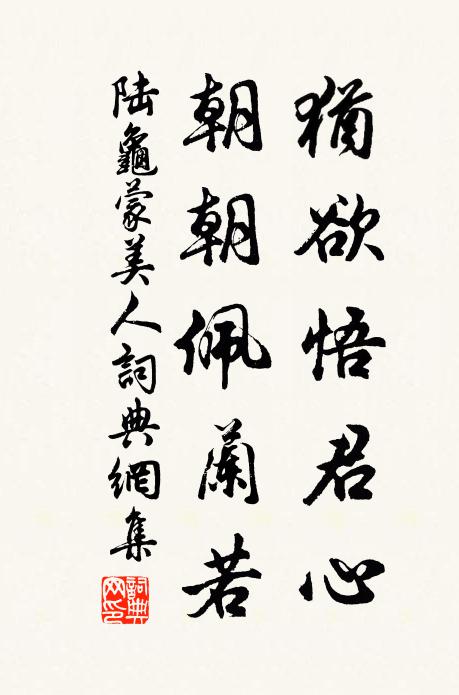 猶欲悟君心
朝朝佩蘭若
陸龜蒙美人詞典網集
詞典网印